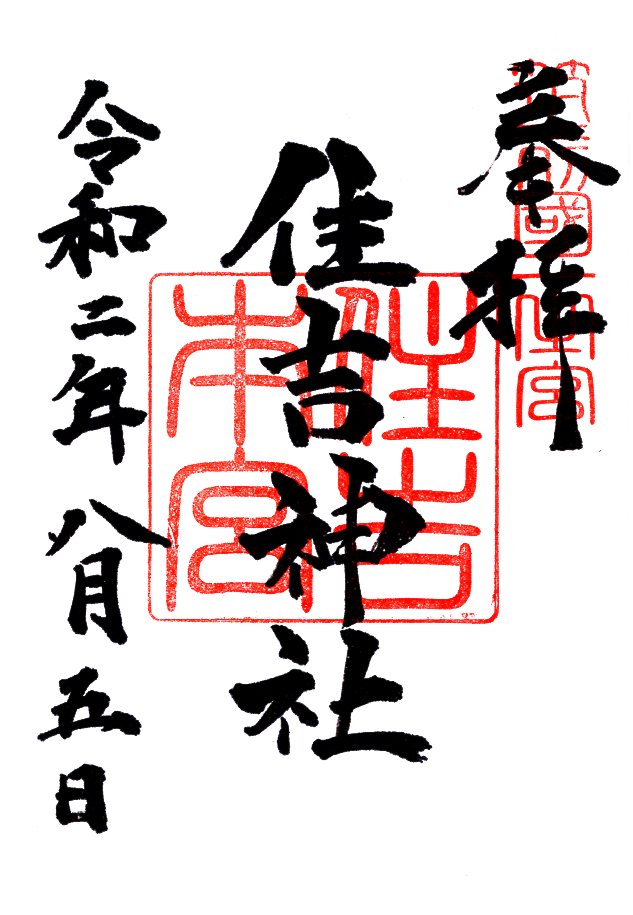 奉拝
筑前國一之宮
住吉神社
住吉本宮
令和二年八月五日